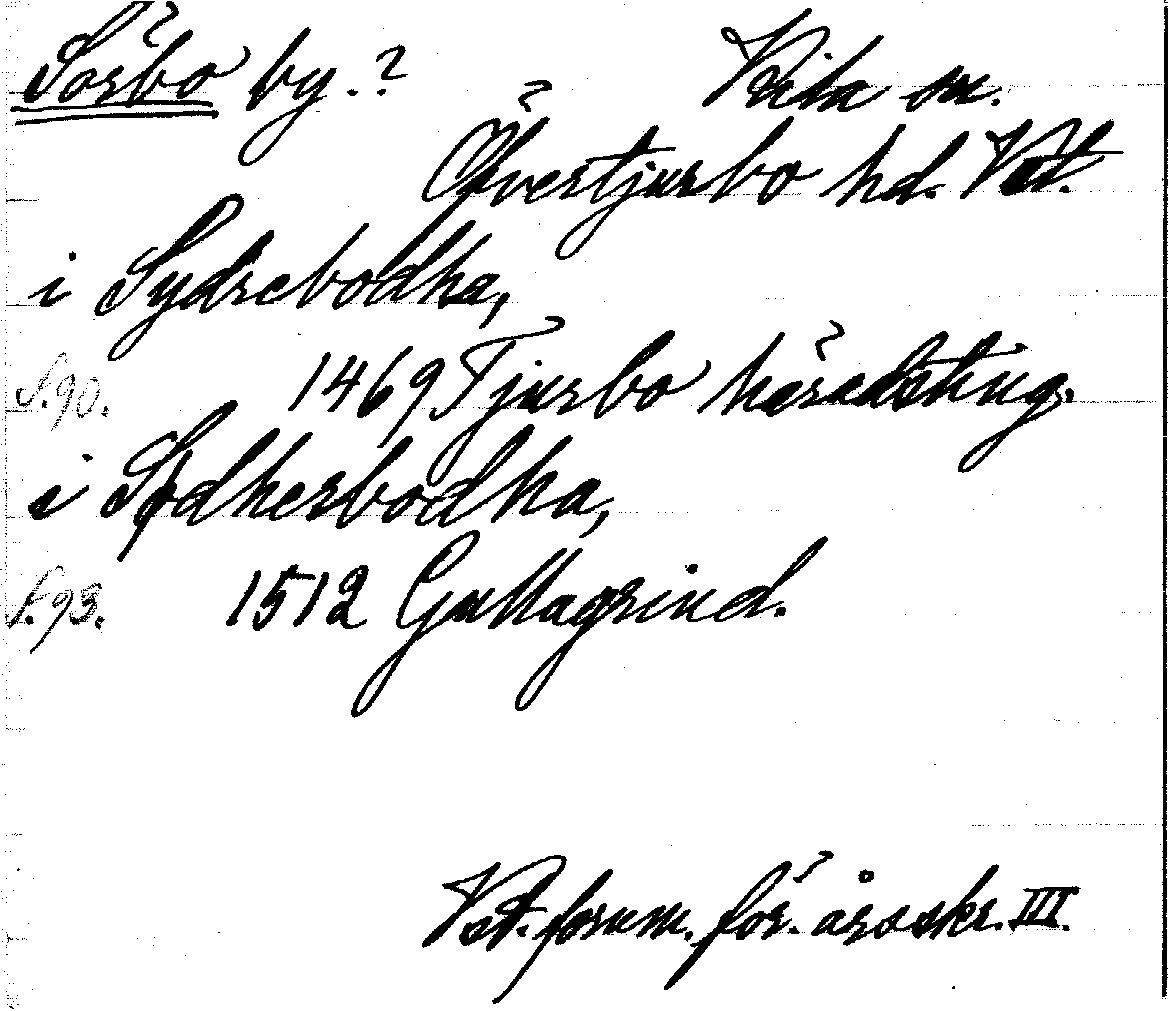 Sörbo by.? Kila sn.
Öfvertjurbo hd. Vst.
i Sydrebodha,
S.90. 1469 Tjurbo häradsting.
i Sødherbodha,
S.93. 1512 Gullagrind.
Vst. fornm. för. årsskr. III.